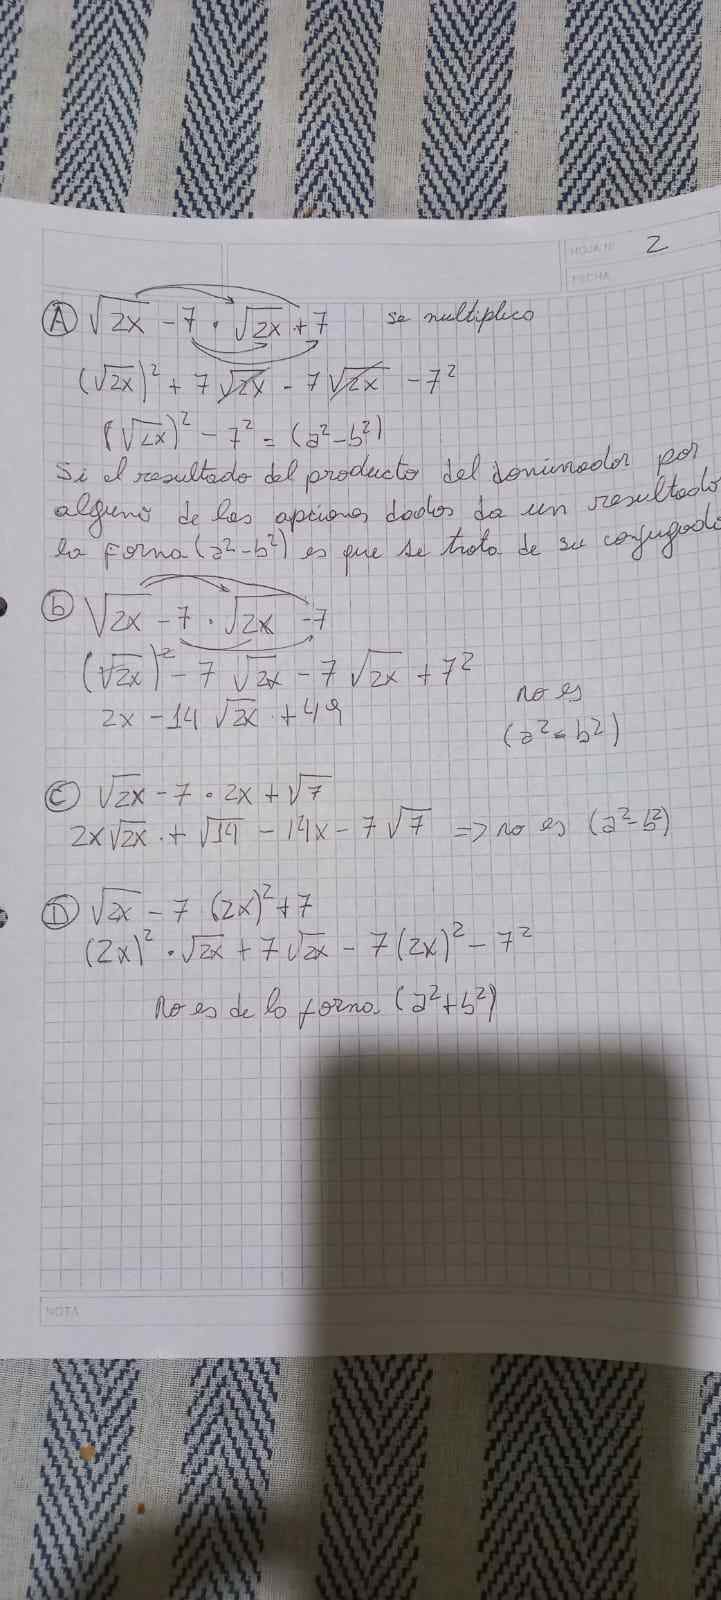 HOJA Nº 2
FECHA
Ⓐ √2x - 7 · √2x + 7 se multiplico
(√2x)² + 7√2x - 7√2x - 7²
(√2x)² - 7² = (a² - b²)
Si el resultado del producto del donimador por
alguno de las opciones dados da un resultado
la forma (a² - b²) es que se trata de su conjugado
ⓑ √2x - 7 · √2x - 7
(√2x)² - 7 √2x - 7 √2x + 7²
2x - 14 √2x + 49
no es
(a² - b²)
Ⓒ √2x - 7 · 2x + √7
2x√2x · + √14 - 14x - 7√7 => no es (a² - b²)
Ⓓ √2x - 7 (2x)² + 7
(2x)² · √2x + 7 √2x - 7(2x)² - 7²
no es de la forma (a² + b²)
NOTA